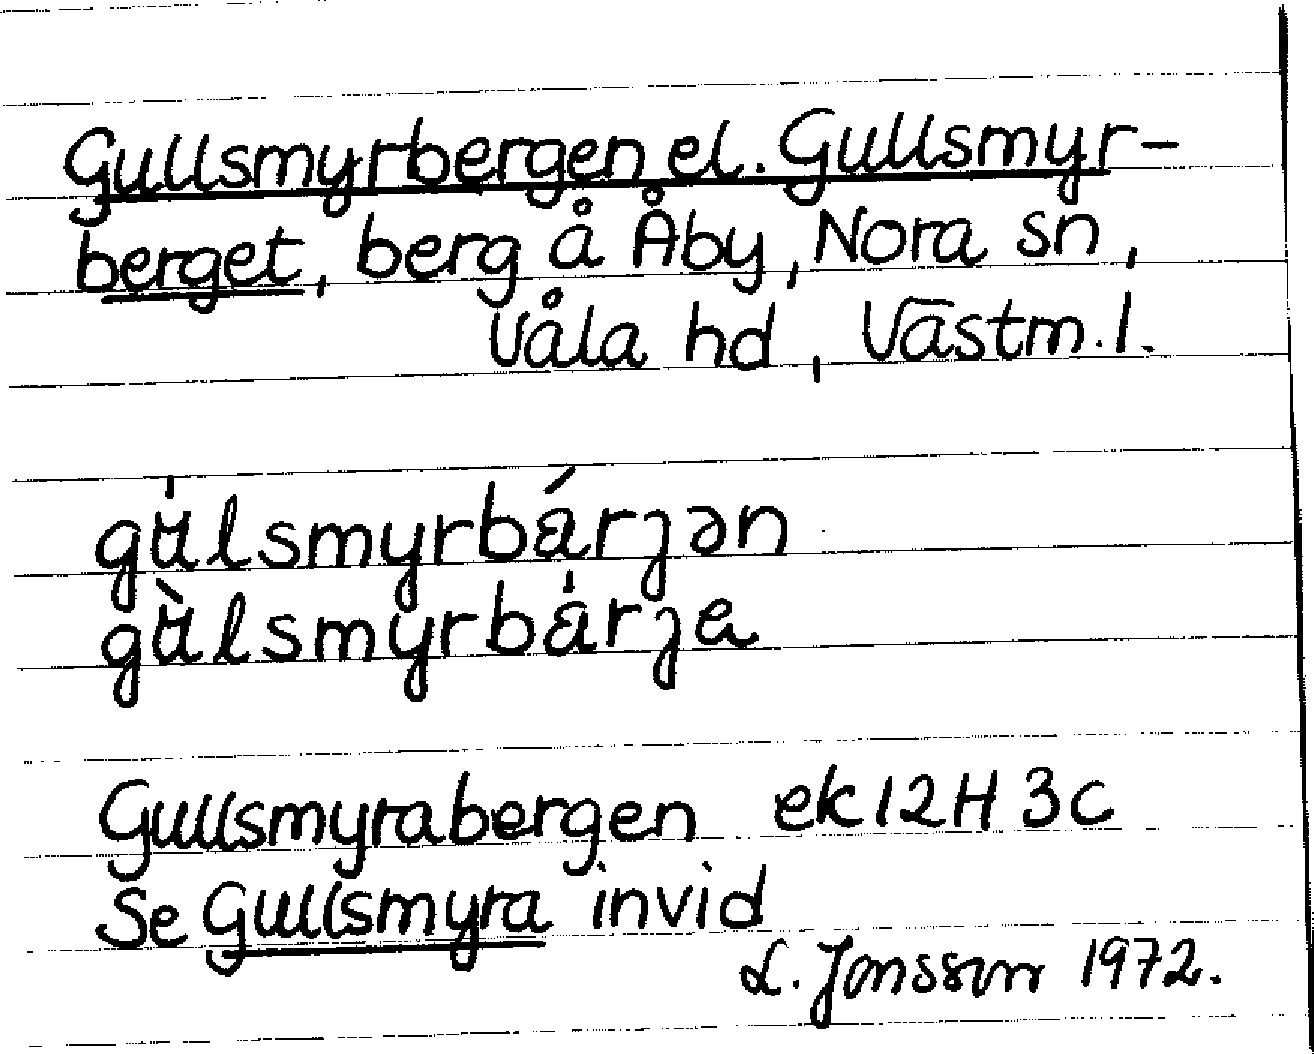 Gullsmyrbergen el. Gullsmyr-
berget, berg å Åby, Nora sn,
Våla hd, Västm. l.
gu̇̀lsmyrbárȷən
gù̀lsmyrbȧ́rȷa
Gullsmyrabergen ek 12H 3c
Se Gullsmyra invid
L. Jonsson 1972.